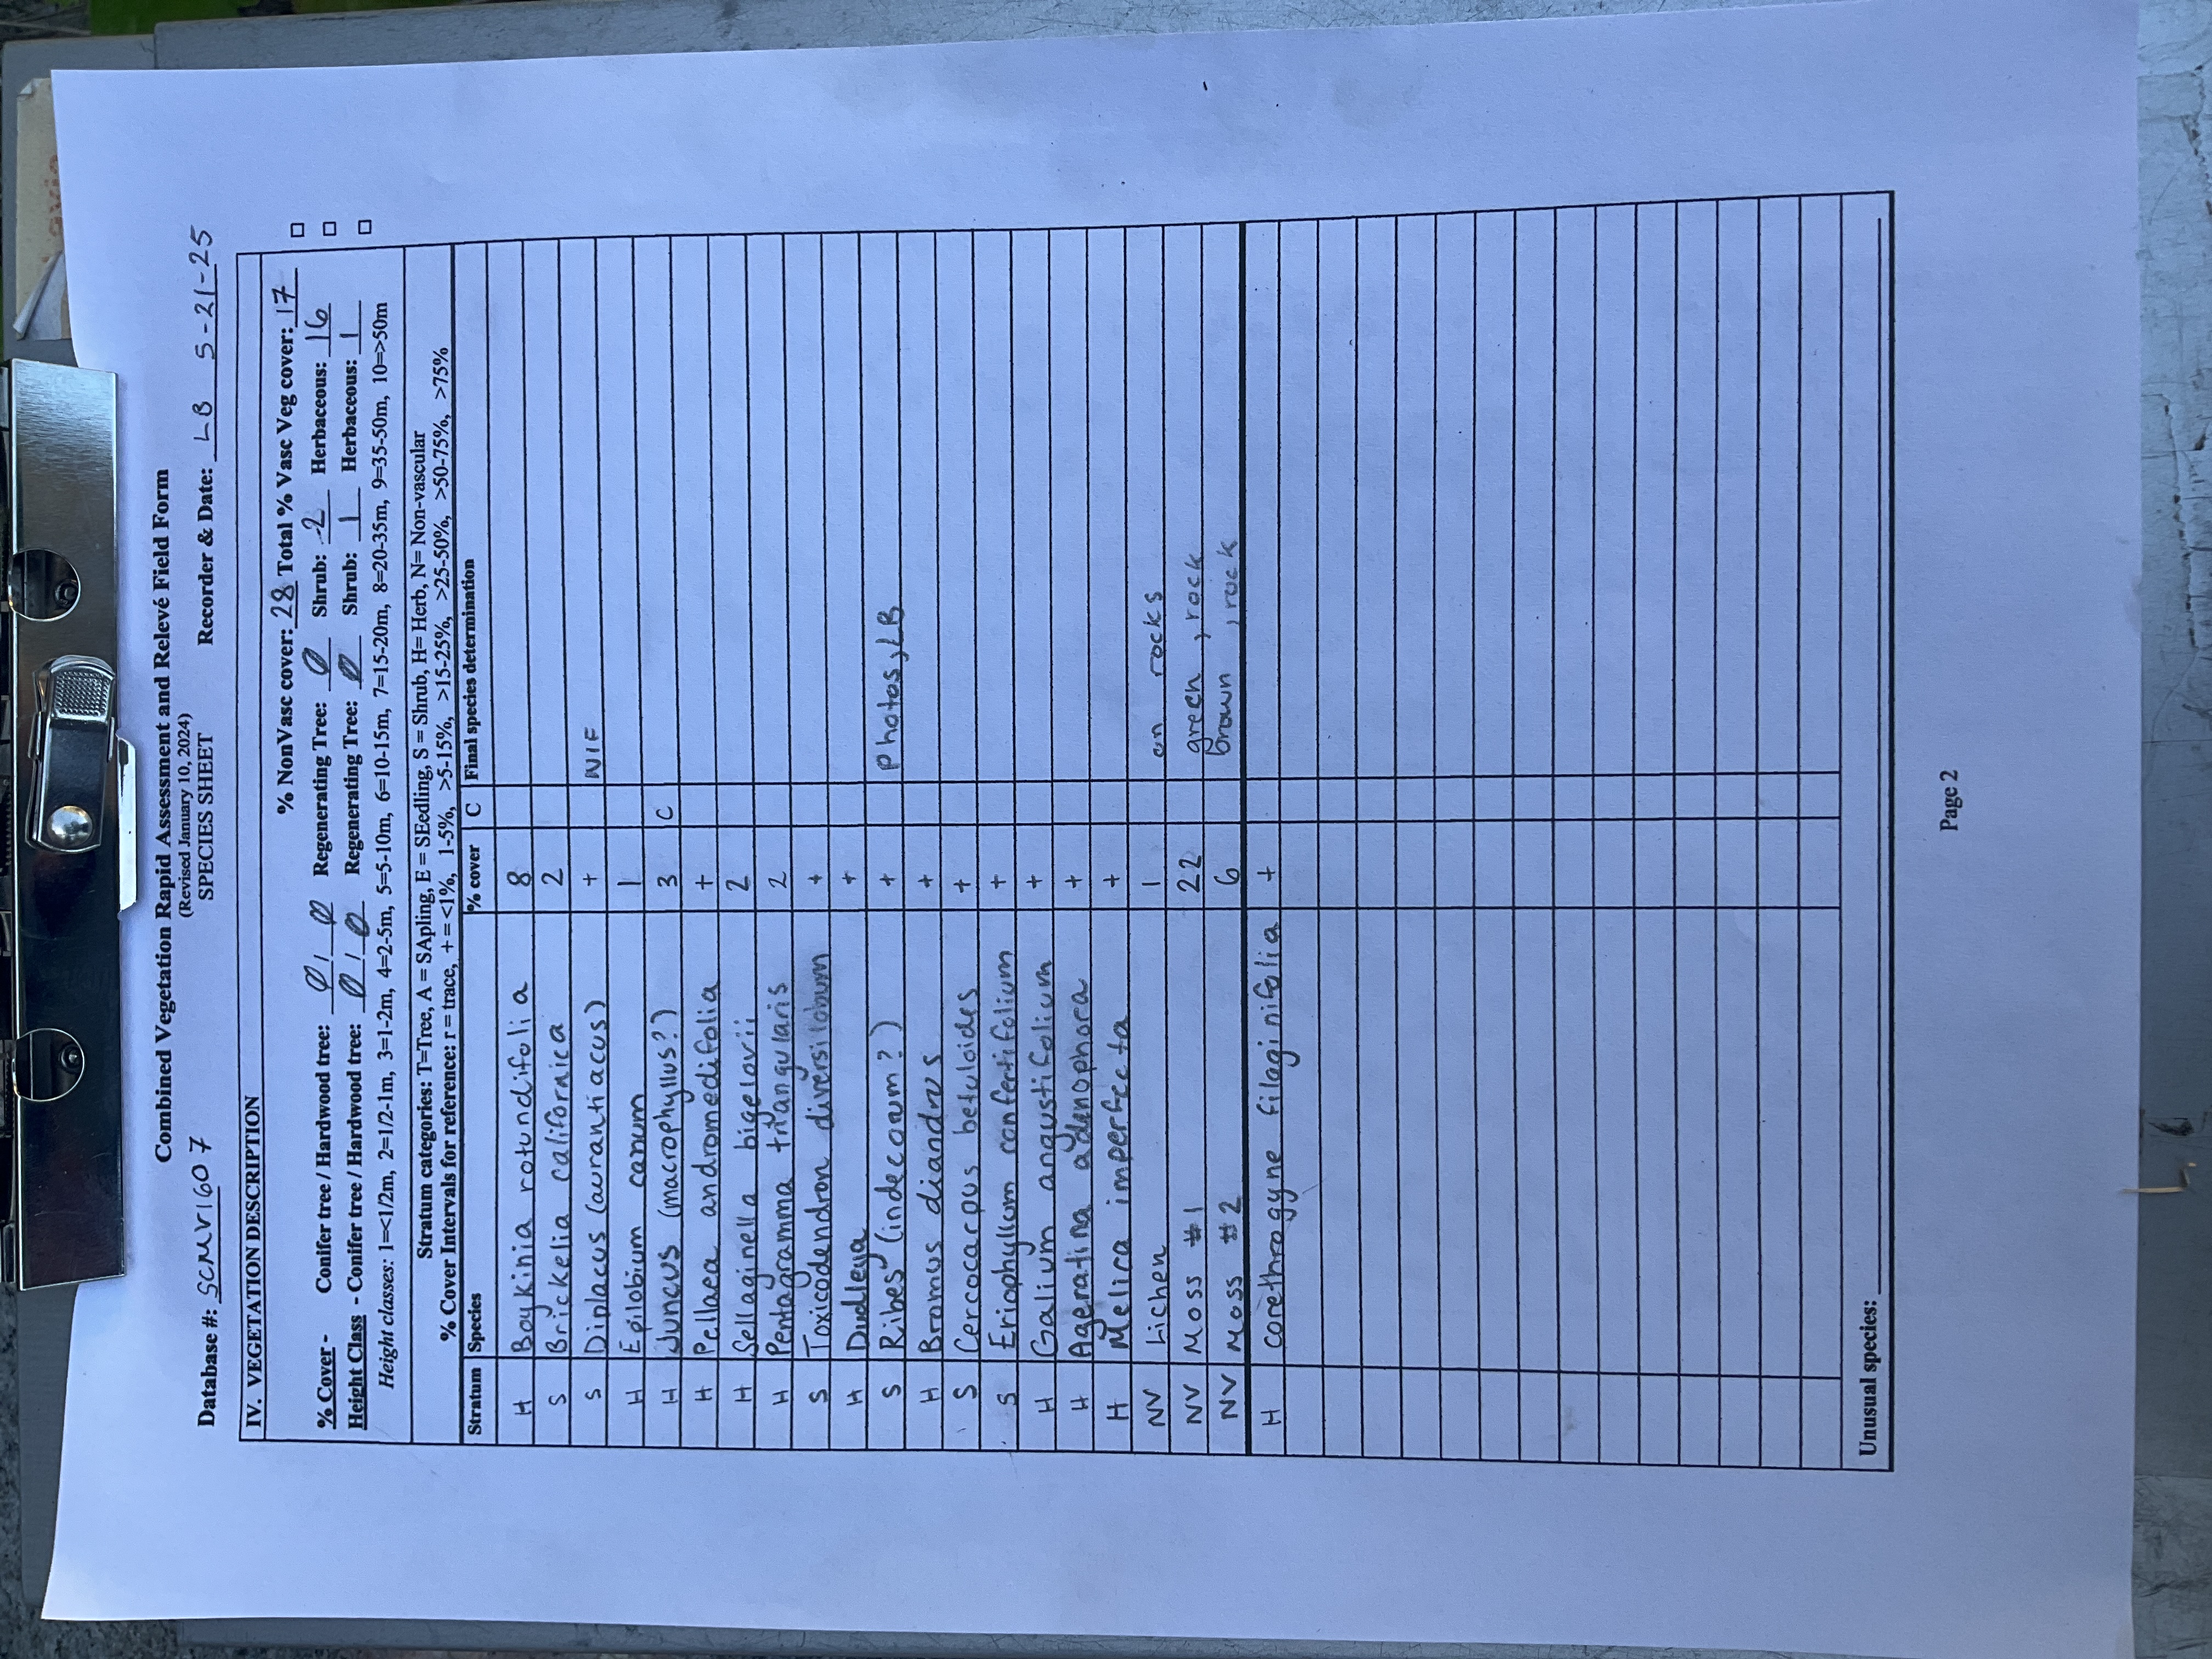 Combined Vegetation Rapid Assessment and Relevé Field Form
(Revised January 10, 2024)
Database #: SCMV1607 SPECIES SHEET Recorder & Date: LB 5-21-25
IV. VEGETATION DESCRIPTION
% NonVasc cover: 28 Total % Vasc Veg cover: 17 □
% Cover - Conifer tree / Hardwood tree: Ø / Ø Regenerating Tree: Ø Shrub: 2 Herbaceous: 16 □
Height Class - Conifer tree / Hardwood tree: Ø / Ø Regenerating Tree: Ø Shrub: 1 Herbaceous: 1 □
Height classes: 1=<1/2m, 2=1/2-1m, 3=1-2m, 4=2-5m, 5=5-10m, 6=10-15m, 7=15-20m, 8=20-35m, 9=35-50m, 10=>50m
Stratum categories: T=Tree, A = SApling, E = SEedling, S = Shrub, H= Herb, N= Non-vascular
% Cover Intervals for reference: r = trace, + = <1%, 1-5%, >5-15%, >15-25%, >25-50%, >50-75%, >75%
Stratum Species % cover C Final species determination
H Boykinia rotundifolia 8
S Brickelia californica 2
S Diplacus (aurantiacus) + NIF
H Epilobium canum 1
H Juncus (macrophyllus?) 3 C
H Pellaea andromedifolia +
H Sellaginella bigelovii 2
H Pentagramma triangularis 2
S Toxicodendron diversilobum +
H Dudleya +
S Ribes (indecorum?) + photos, LB
H Bromus diandrus +
S Cercocarpus betuloides +
S Eriophyllum confertifolium +
H Galium angustifolium +
H Ageratina adenophora +
H Melica imperfecta +
NV Lichen 1 on rocks
NV Moss #1 22 green, rock
NV Moss #2 6 brown, rock
H Corethrogyne filaginifolia +
Unusual species:
Page 2